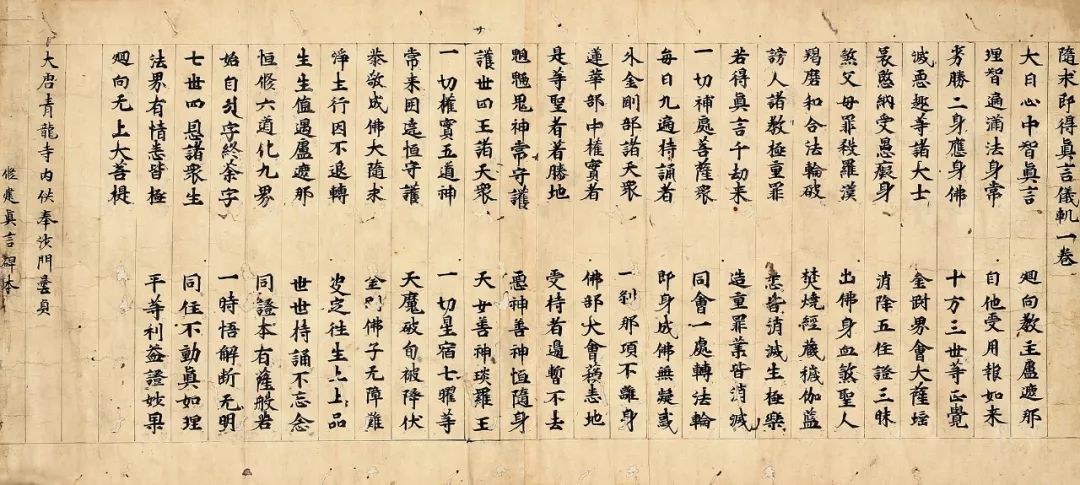 隨求即得眞言儀軌一卷
大日心中智眞言　廻向教主盧遮那
理智遍滿法身常　自他受用報如来
劣勝二身應身佛　十方三世等正覺
滅惡趣等諸大士　金對界會大薩埵
哀愍納受愚癡身　消除五住證三昧
煞父母罪煞羅漢　出佛身血煞聖人
羯磨和合法輪破　焚燒經蔵穢伽藍
謗人諸教極重罪　悉皆消滅生極樂
若得眞言千劫来　造重罪業皆消滅
一切補處菩薩衆　同會一處轉法輪
每日九遍持誦者　即身成佛無疑或
外金剛部諸天衆　一剎那頃不離身
蓮華部中權實者　佛部大會悉地
是等聖者着勝地　受持者邊暫不去
魍魎鬼神常守護　惡神善神恒隨身
護世四王諸天衆　天女善神琰羅王
一切權實五道神　一切星宿七曜等
常来遶恒守護　天魔破旬被降伏
恭敬成佛大隨求　金剛佛子无障難
淨土行因不退轉　決定往生上上品
生生值遇盧遮那　世世持誦不忘念
恒修六道化九界　同證本有薩般若
始自字終荼字　一時悟解斷无明
七世四恩諸衆生　同住不動眞如理
法界有情悉皆極　平等利益證妙果
廻向无上大菩提
大唐青龍寺内供奉沙門曇貞
修建眞言碑本